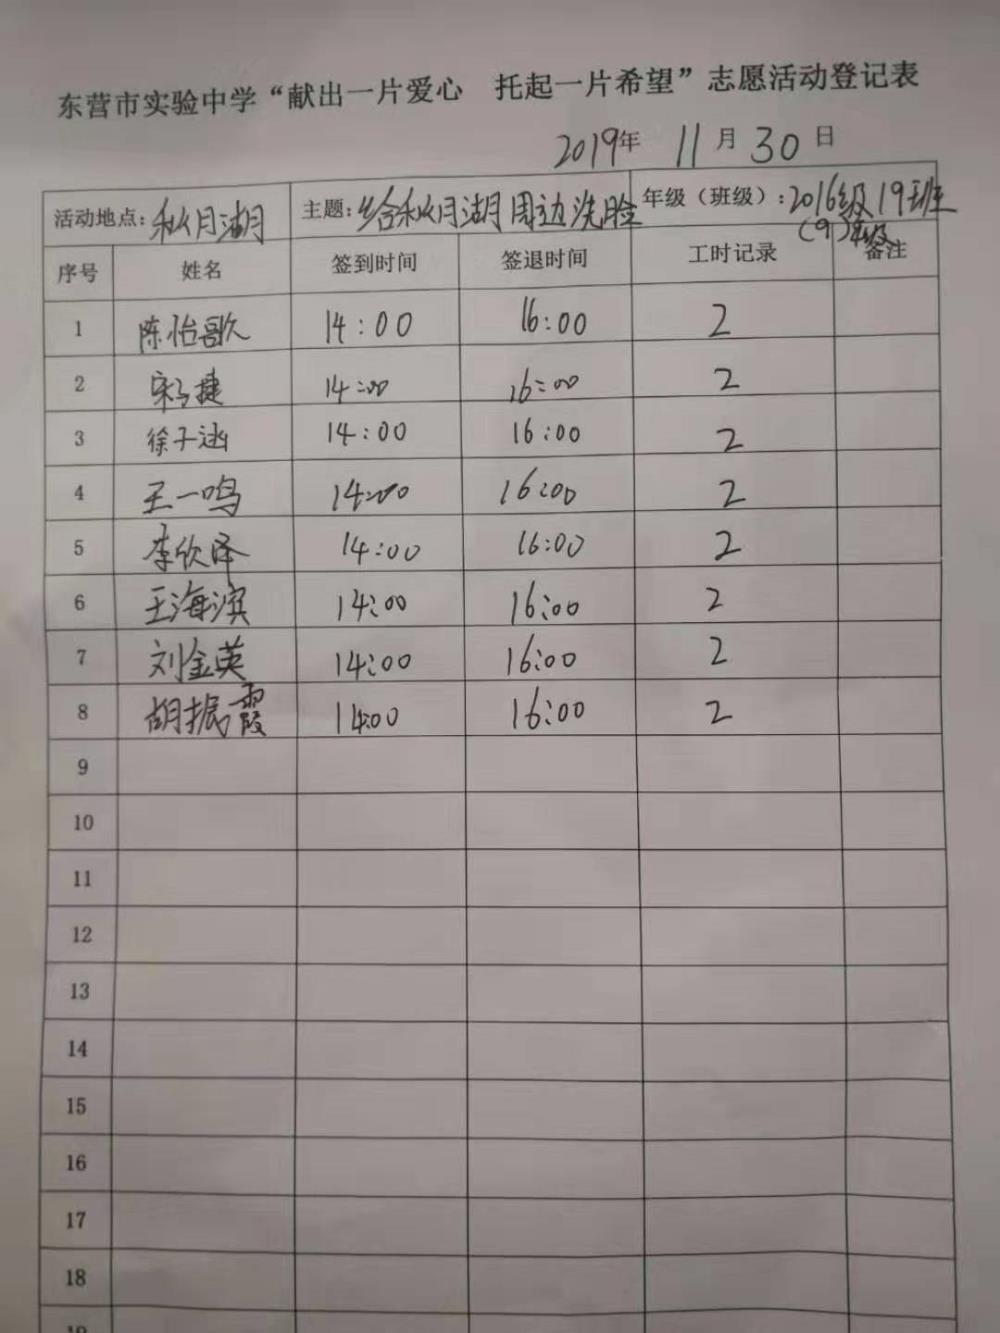 东营市实验中学“献出一片爱心 托起一片希望”志愿活动登记表
2019年 11月30日
活动地点:秋月湖 主题:给秋月湖周边洗脸 年级(班级):2016级19班
(9)年级
序号 姓名 签到时间 签退时间 工时记录 备注
1 陈怡歌 14:00 16:00 2
2 捷 14:00 16:00 2
3 徐子涵 14:00 16:00 2
4 王一鸣 14:00 16:00 2
5 李欣泽 14:00 16:00 2
6 王海滨 14:00 16:00 2
7 刘金英 14:00 16:00 2
8 胡振霞 14:00 16:00 2
9
10
11
12
13
14
15
16
17
18
19